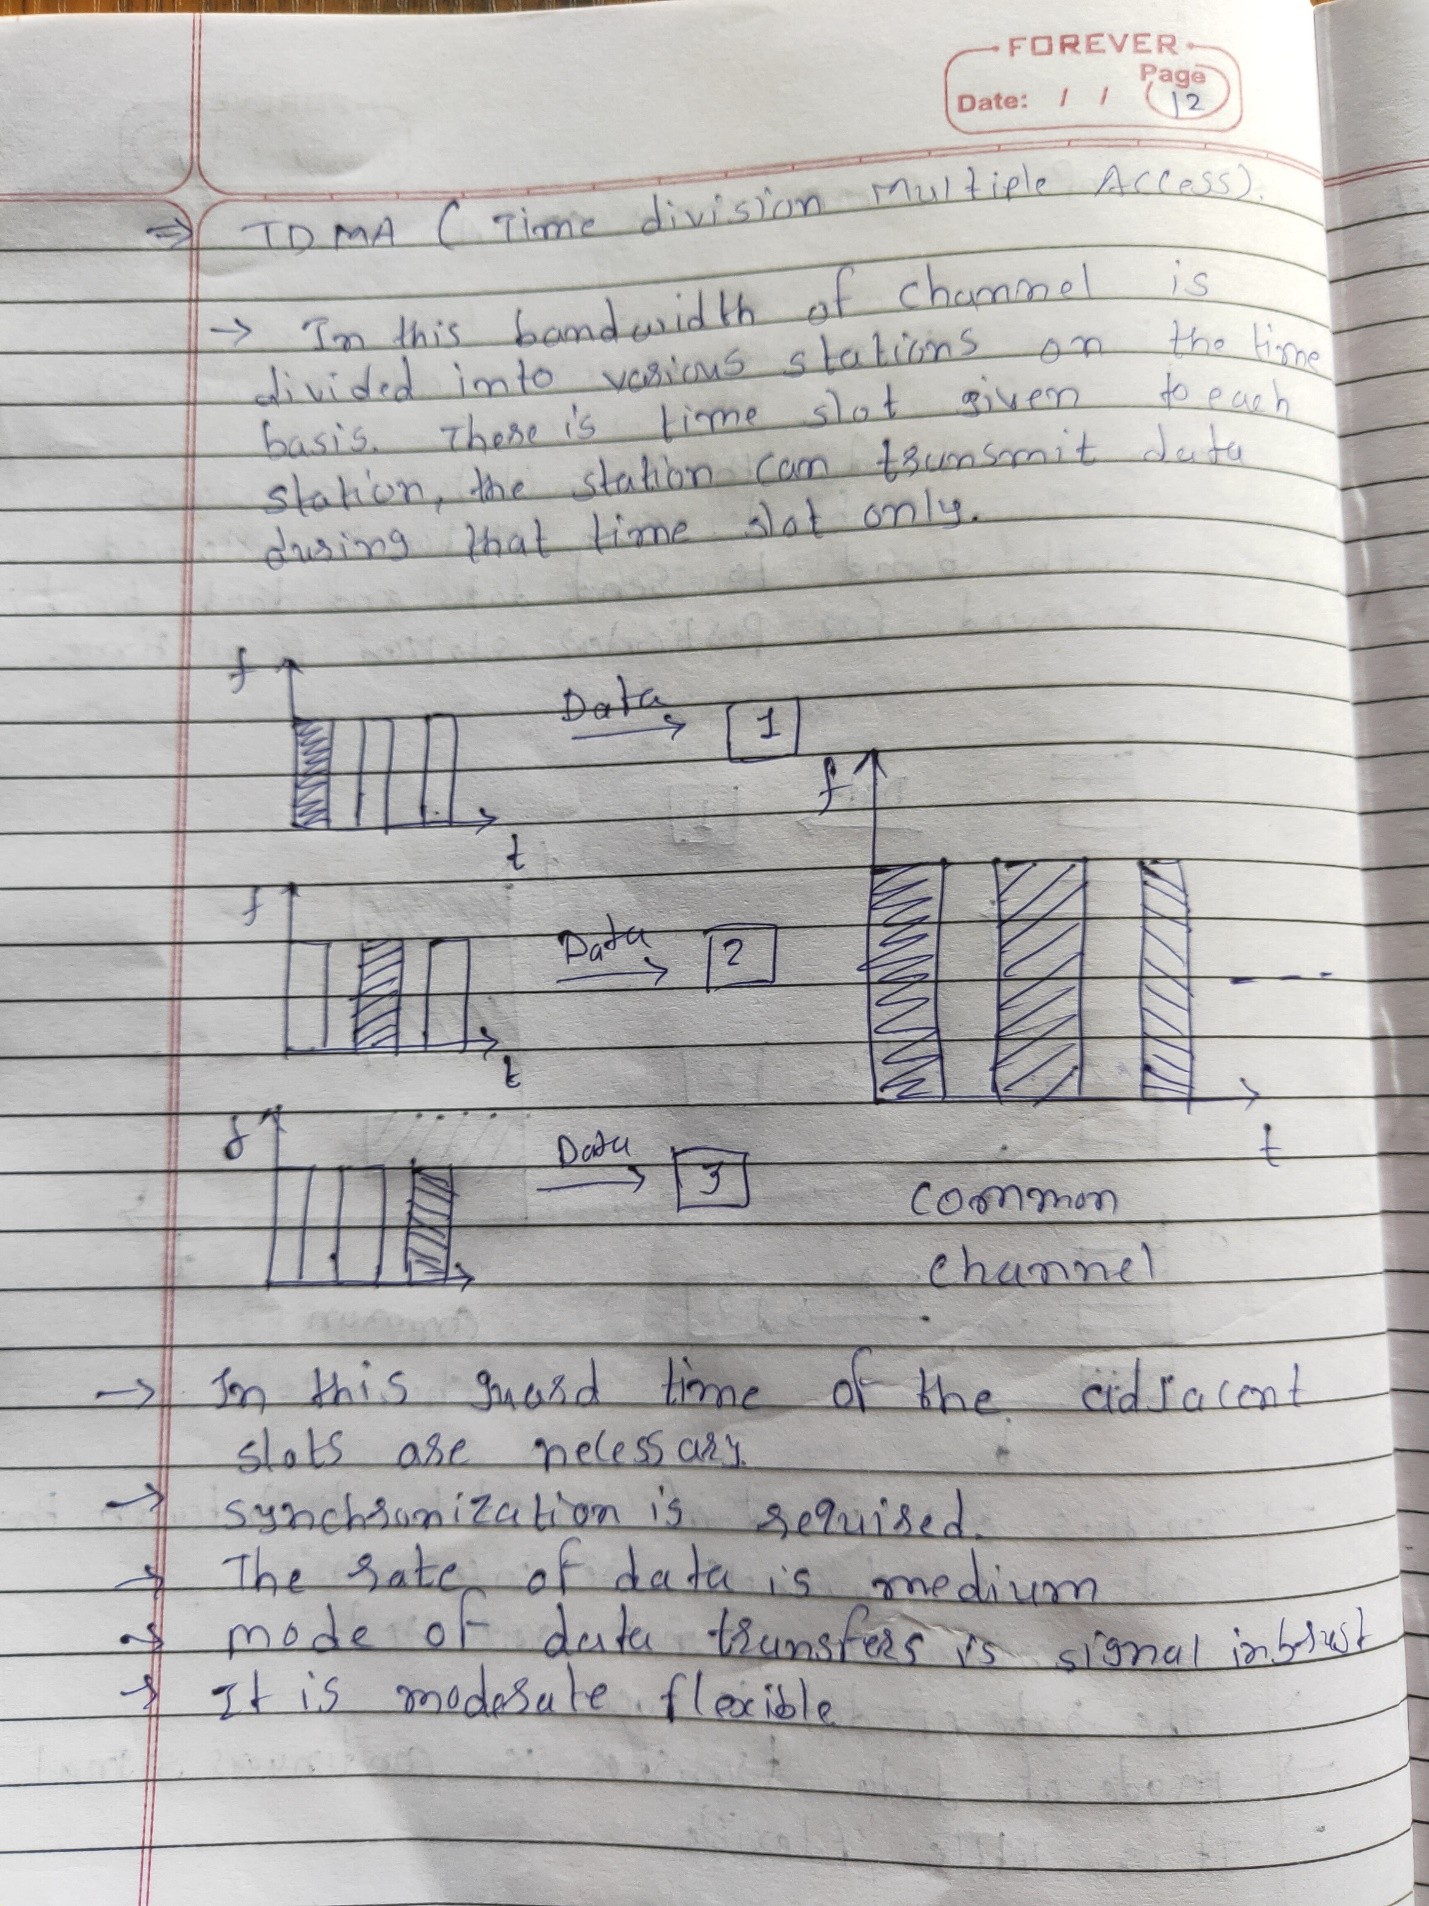 FOREVER
Page
Date: / / 12
⇒ TDMA ( Time division Multiple Access).
→ In this bandwidth of channel is
divided into various stations on the time
basis. There is time slot given to each
station, the station can transmit data
during that time slot only.
f
Data
1
t
f
f
Data
2
t
f
Data
3
t
common
channel
→ In this guard time of the adjacent
slots are necessary.
→ synchronization is required.
→ The rate of data is medium
→ mode of data transfers is signal in brust
→ It is moderate flexible